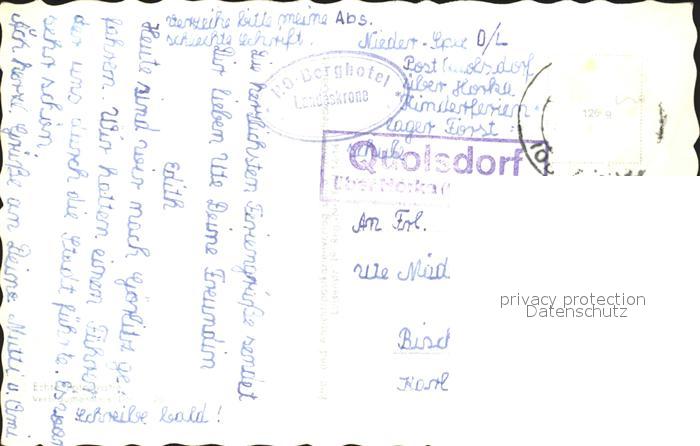 Die herzlichsten Feriengrüße sendet
Dir lieben Ute Deine Freundin
Edith
Heute sind wir nach Görlitz ge-
fahren. Wir hatten einen Führer
der uns durch die Stadt führte. Es war
sehr schön
Ich herzl. Grüße an Deine Mutti u. Omi
Schreibe bald!
Verzeihe bitte meine
schlechte Schrift.
Abs.
Nieder-
O/L
Post Quolsdorf
über Horka
"Kinderferien-
lager Forst
HO-Berghotel
Landeskrone
Quolsdorf
über Horka
An Frl.
Ute Mäd
Bisch
Karl
privacy protection
Datenschutz